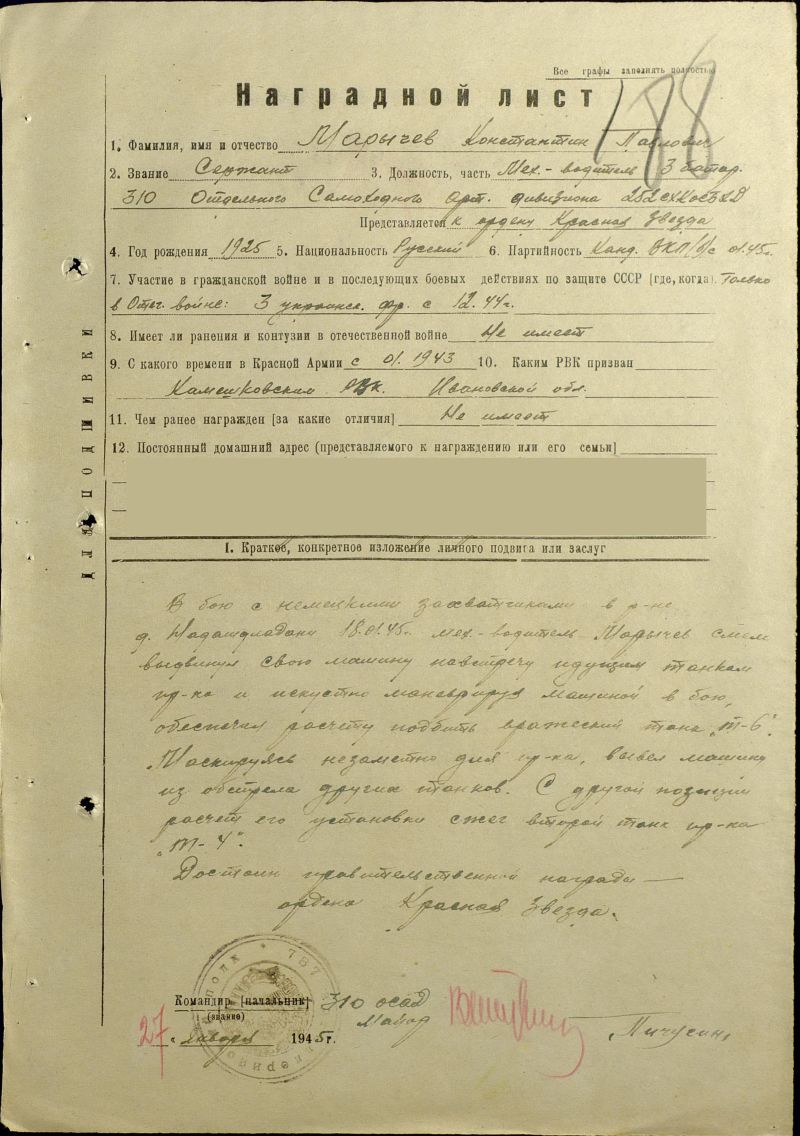 Все графы заполнять полностью
198
Наградной лист
1. Фамилия, имя и отчество Марычев Константин Павлович
2. Звание Сержант 3. Должность, часть Мех.-водитель 3 батар.
310 Отдельного Самоходного арт. дивизиона 252 сХКосБД
Представляется к ордену Красная Звезда
4. Год рождения 1925 5. Национальность Русский 6. Партийность Канд. ВКП/б/ с 01.45г.
7. Участие в гражданской войне и в последующих боевых действиях по защите СССР [где, когда]. Только
в Отеч. войне: 3 украинск. фр. с 12.44г.
8. Имеет ли ранения и контузии в отечественной войне Не имеет
9. С какого времени в Красной Армии с 01.1943 10. Каким РВК призван
Камешковским РВК. Ивановской обл.
11. Чем ранее награжден [за какие отличия] Не имеет
12. Постоянный домашний адрес (представляемого к награждению или его семьи]
I. Краткое, конкретное изложение личного подвига или заслуг
В бою с немецкими захватчиками в р-не
д. Надашдладани 18.01.45г. мех.-водитель Марычев смело
выдвинул свою машину навстречу идущим танкам
пр-ка и искустно маневрируя машиной в бою,
обеспечил расчету подбить вражеский танк "Т-6".
Маскируясь незаметно для пр-ка, вывел машину
из обстрела других танков. С другой позиции
расчет его установки сжег второй танк пр-ка
"Т-4".
Достоин правительственной награды —
ордена Красная Звезда.
Командир [начальник] 310 осад
(звание) Майор Пичугин
27 " января 1945г.
ДЛЯ ПОДШИВКИ